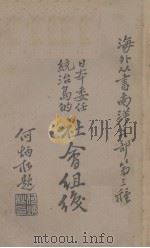 海外丛書南洋之部第三種
日本委任
統治島的
社會組织
何炳松題